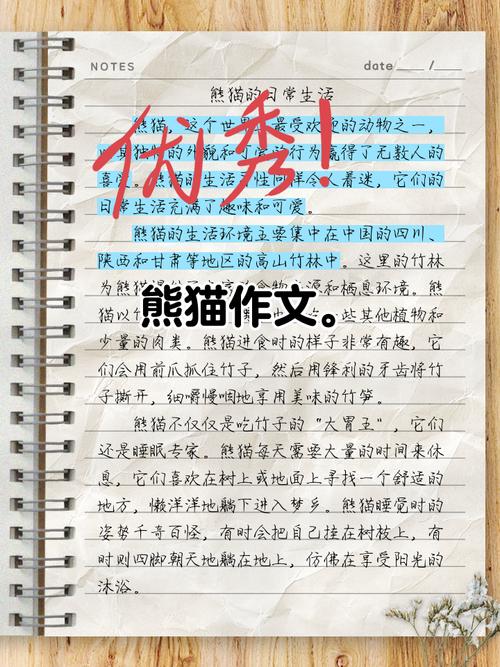 NOTES
date ___ / ___
熊猫的日常生活
优秀!
熊猫,这个世界 最受欢迎的动物之一,
独 的外貌和可 行为赢得了无数人的
喜 。熊猫的生活 性同样令人着迷,它们的
日常生活充满了趣味和可爱。
熊猫的生活环境主要集中在中国的四川、
陕西和甘肃等地区的高山竹林中。这里的竹林
为熊猫 食物 源和栖息环境。熊
猫以竹 些其他植物和
熊猫作文。
少量的肉类。熊猫进食时的样子非常有趣,它
们会用前爪抓住竹子,然后用锋利的牙齿将竹
子撕开,细嚼慢咽地享用美味的竹笋。
熊猫不仅仅是吃竹子的"大胃王",它们
还是睡眠专家。熊猫每天需要大量的时间来休
息,它们喜欢在树上或地面上寻找一个舒适的
地方,懒洋洋地躺下进入梦乡。熊猫睡觉时的
姿势千奇百怪,有时会把自己挂在树枝上,有
时则四脚朝天地躺在地上,仿佛在享受阳光的
沐浴。